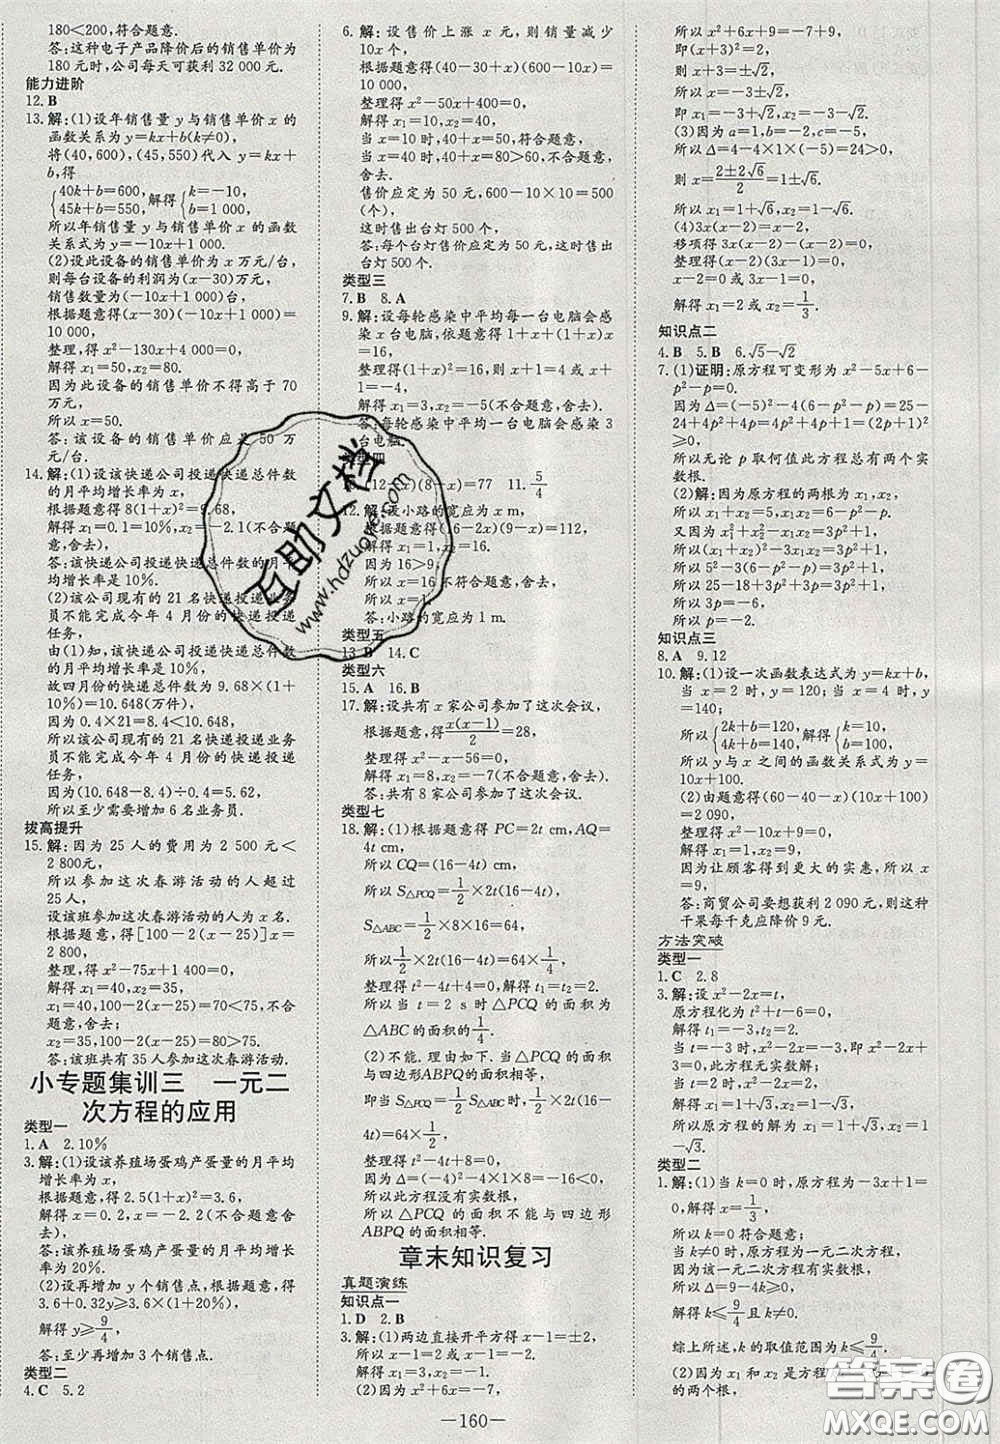 180<200,符合题意.
答:这种电子产品降价后的销售单价为
180元时,公司每天可获利32 000元.
能力进阶
12.B
13.解:(1)设年销售量y与销售单价x的
函数关系为y=kx+b(k≠0),
将(40,600),(45,550)代入y=kx+
b,得
{40k+b=600, 45k+b=550, 解得{k=-10, b=1 000,
所以年销售量y与销售单价x的函数
关系式为y=-10x+1 000;
(2)设此设备的销售单价为x万元/台,
则每台设备的利润为(x-30)万元,
销售数量为(-10x+1 000)台,
根据题意得(x-30)(-10x+1 000)=
10 000,
整理,得x²-130x+4 000=0,
解得x₁=50,x₂=80.
因为此设备的销售单价不得高于70
万元,
所以x=50.
答:该设备的销售单价应是50万
元/台.
14.解:(1)设该快递公司投递快递总件数
的月平均增长率为x,
根据题意得8(1+x)²=9.68,
解得x₁=0.1,x₂=-2.1(不符合题意,
舍去),
答:该快递公司投递快递总件数的月平
均增长率是10%.
(2)该公司现有的21名快递投递业务
员不能完成今年4月份的快递投递
任务,
由(1)知,该快递公司投递快递总件数
的月平均增长率是10%,
故四月份的快递总件数为9.68×(1+
10%)=10.648(万件),
因为0.4×21=8.4<10.648,
所以该公司现有的21名快递投递业务
员不能完成今年4月份的快递投递
任务,
因为(10.648-8.4)÷0.4=5.62,
所以至少需要增加6名业务员.
拔高提升
15.解:因为25人的费用为2 500元<
2 800元,
所以参加这次春游活动的人数超过
25人,
设该班参加这次春游活动的人数为x名.
根据题意,得[100-2(x-25)]x=
2 800,
整理,得x²-75x+1 400=0,
解得x₁=40,x₂=35,
x₁=40,100-2(x-25)=70<75,不合
题意,舍去;
x₂=35,100-2(x-25)=80>75,
答:该班共有35人参加这次春游活动.
小专题集训三 一元二
次方程的应用
类型一
1.A 2.10%
3.解:(1)设该养殖场蛋鸡产蛋量的月平均
增长率为x,
根据题意,得2.5(1+x)²=3.6,
解得x=0.2,x=-2.2(不合题意,
舍去).
答:该养殖场蛋鸡产蛋量的月平均增长
率为20%.
(2)设再增加y个销售点,根据题意,得
3.6+0.32y≥3.6×(1+20%),
解得y≥9/4,
答:至少再增加3个销售点.
类型二
4.C 5.2
6.解:设售价上涨x元,则销量减少
10x个,
根据题意得(40-30+x)(600-10x)=
10 000,
整理得x²-50x+400=0,
解得x₁=10,x₂=40,
当x=10时,40+x=50,符合题意,
当x=40时,40+x=80>60,不合题意,
舍去.
售价应定为50元,600-10×10=500
(个),
这时售出台灯500个.
答:每个台灯售价应定为50元,这时售出
台灯500个.
类型三
7.B 8.A
9.解:设每轮感染中平均每一台电脑会感
染x台电脑,依题意得1+x+(1+x)x
=16,
整理得(1+x)²=16,
解得x₁=3,x₂=-5(不合题意,舍去).
答:每轮感染中平均一台电脑会感染3
台电脑.
(12-x)(8-x)=77 11.5/4
12.解:设小路的宽应为x m,
根据题意得(16-2x)(9-x)=112,
解得x₁=1,x₂=16.
因为16>9,
所以x=16不符合题意,舍去,
所以x=1.
答:小路的宽应为1 m.
类型五
13.B 14.C
类型六
15.A 16.B
17.解:设共有x家公司参加了这次会议,
根据题意,得x(x-1)/2=28,
整理,得x²-x-56=0,
解得x₁=8,x₂=-7(不合题意,舍去).
答:共有8家公司参加了这次会议.
类型七
18.解:(1)根据题意得PC=2t cm,AQ=
4t cm,
所以CQ=(16-4t)cm,
所以S△PCQ=1/2×2t(16-4t),
S△ABC=1/2×8×16=64,
所以1/2×2t(16-4t)=64×1/4,
整理得t²-4t+4=0,解得t=2.
所以当t=2 s时△PCQ的面积为
△ABC的面积的1/4;
(2)不能.理由如下:当△PCQ的面积
与四边形ABPQ面积相等时,
即当S△PCQ=1/2S△ABC时,1/2×2t(16-
4t)=64×1/2,
整理得t²-4t+8=0,
因为Δ=(-4)²-4×8=-16<0,
所以此方程没有实数根,
所以△PCQ的面积不可能与四边形
ABPQ的面积相等.
章末知识复习
真题演练
知识点一
1.D 2.B
3.解:(1)两边直接开平方得x-1=±2,
解得x₁=3,x₂=-1.
(2)因为x²+6x=-7,
所以x²+6x+9=-7+9,
即(x+3)²=2,
则x+3=±√2,
所以x=-3±√2,
即x₁=-3+√2,x₂=-3-√2.
(3)因为a=1,b=-2,c=-5,
所以Δ=4-4×1×(-5)=24>0,
则x=(2±2√6)/2=1±√6,
所以x₁=1+√6,x₂=1-√6.
(4)3x(x-2)=x-2,
移项得3x(x-2)-(x-2)=0,
整理得(x-2)(3x-1)=0,
x-2=0或3x-1=0,
解得x₁=2或x₂=1/3.
知识点二
4.B 5.B 6.√5-√2
7.(1)证明:原方程可变形为x²-5x+6-
p²-p=0.
因为Δ=(-5)²-4(6-p²-p)=25-
24+4p²+4p=4p²+4p+1=(2p+1)²
≥0,
所以无论p取何值此方程总有两个实
数根.
(2)解:因为原方程的两根为x₁,x₂,
所以x₁+x₂=5,x₁x₂=6-p²-p.
又因为x₁²+x₂²-x₁x₂=3p²+1,
所以(x₁+x₂)²-3x₁x₂=3p²+1,
所以5²-3(6-p²-p)=3p²+1,
所以25-18+3p²+3p=3p²+1,
所以3p=-6,
所以p=-2.
知识点三
8.A 9.12
10.解:(1)设一次函数表达式为y=kx+b,
当x=2时,y=120;当x=4时,y=
140;
所以{2k+b=120, 4k+b=140,解得{k=10, b=100,
所以y与x之间的函数关系式为y=
10x+100;
(2)由题意得(60-40-x)(10x+100)=
2 090,
整理得x²-10x+9=0,
解得x₁=1,x₂=9.
因为让顾客得到更大的实惠,所以x=9.
答:商贸公司要想获利2 090元,则这种
干果每千克应降价9元.
方法突破
类型一
1.C 2.8
3.解:设x²-2x=t,
原方程化为t²+t-6=0,
解得t₁=-3,t₂=2,
当t=-3时,x²-2x=-3,
此时方程无实数解;
当t=2时,x²-2x=2,
解得x₁=1+√3,x₂=1-√3,
所以原方程的解为x₁=1+√3,x₂=
1-√3.
类型二
1.解:(1)当k=0时,原方程为-3x+1=0,
解得x=1/3,
所以k=0符合题意;
当k≠0时,原方程为一元二次方程,
因为该一元二次方程有实数根,
所以Δ=9-4k≥0,
解得k≤9/4.
综上所述,k的取值范围为k≤9/4.
(2)因为x₁和x₂是方程kx²-3x+1=0
的两个根,
—160—
互助文档
www.hdzuoye.com
答案圈
MXQE.COM